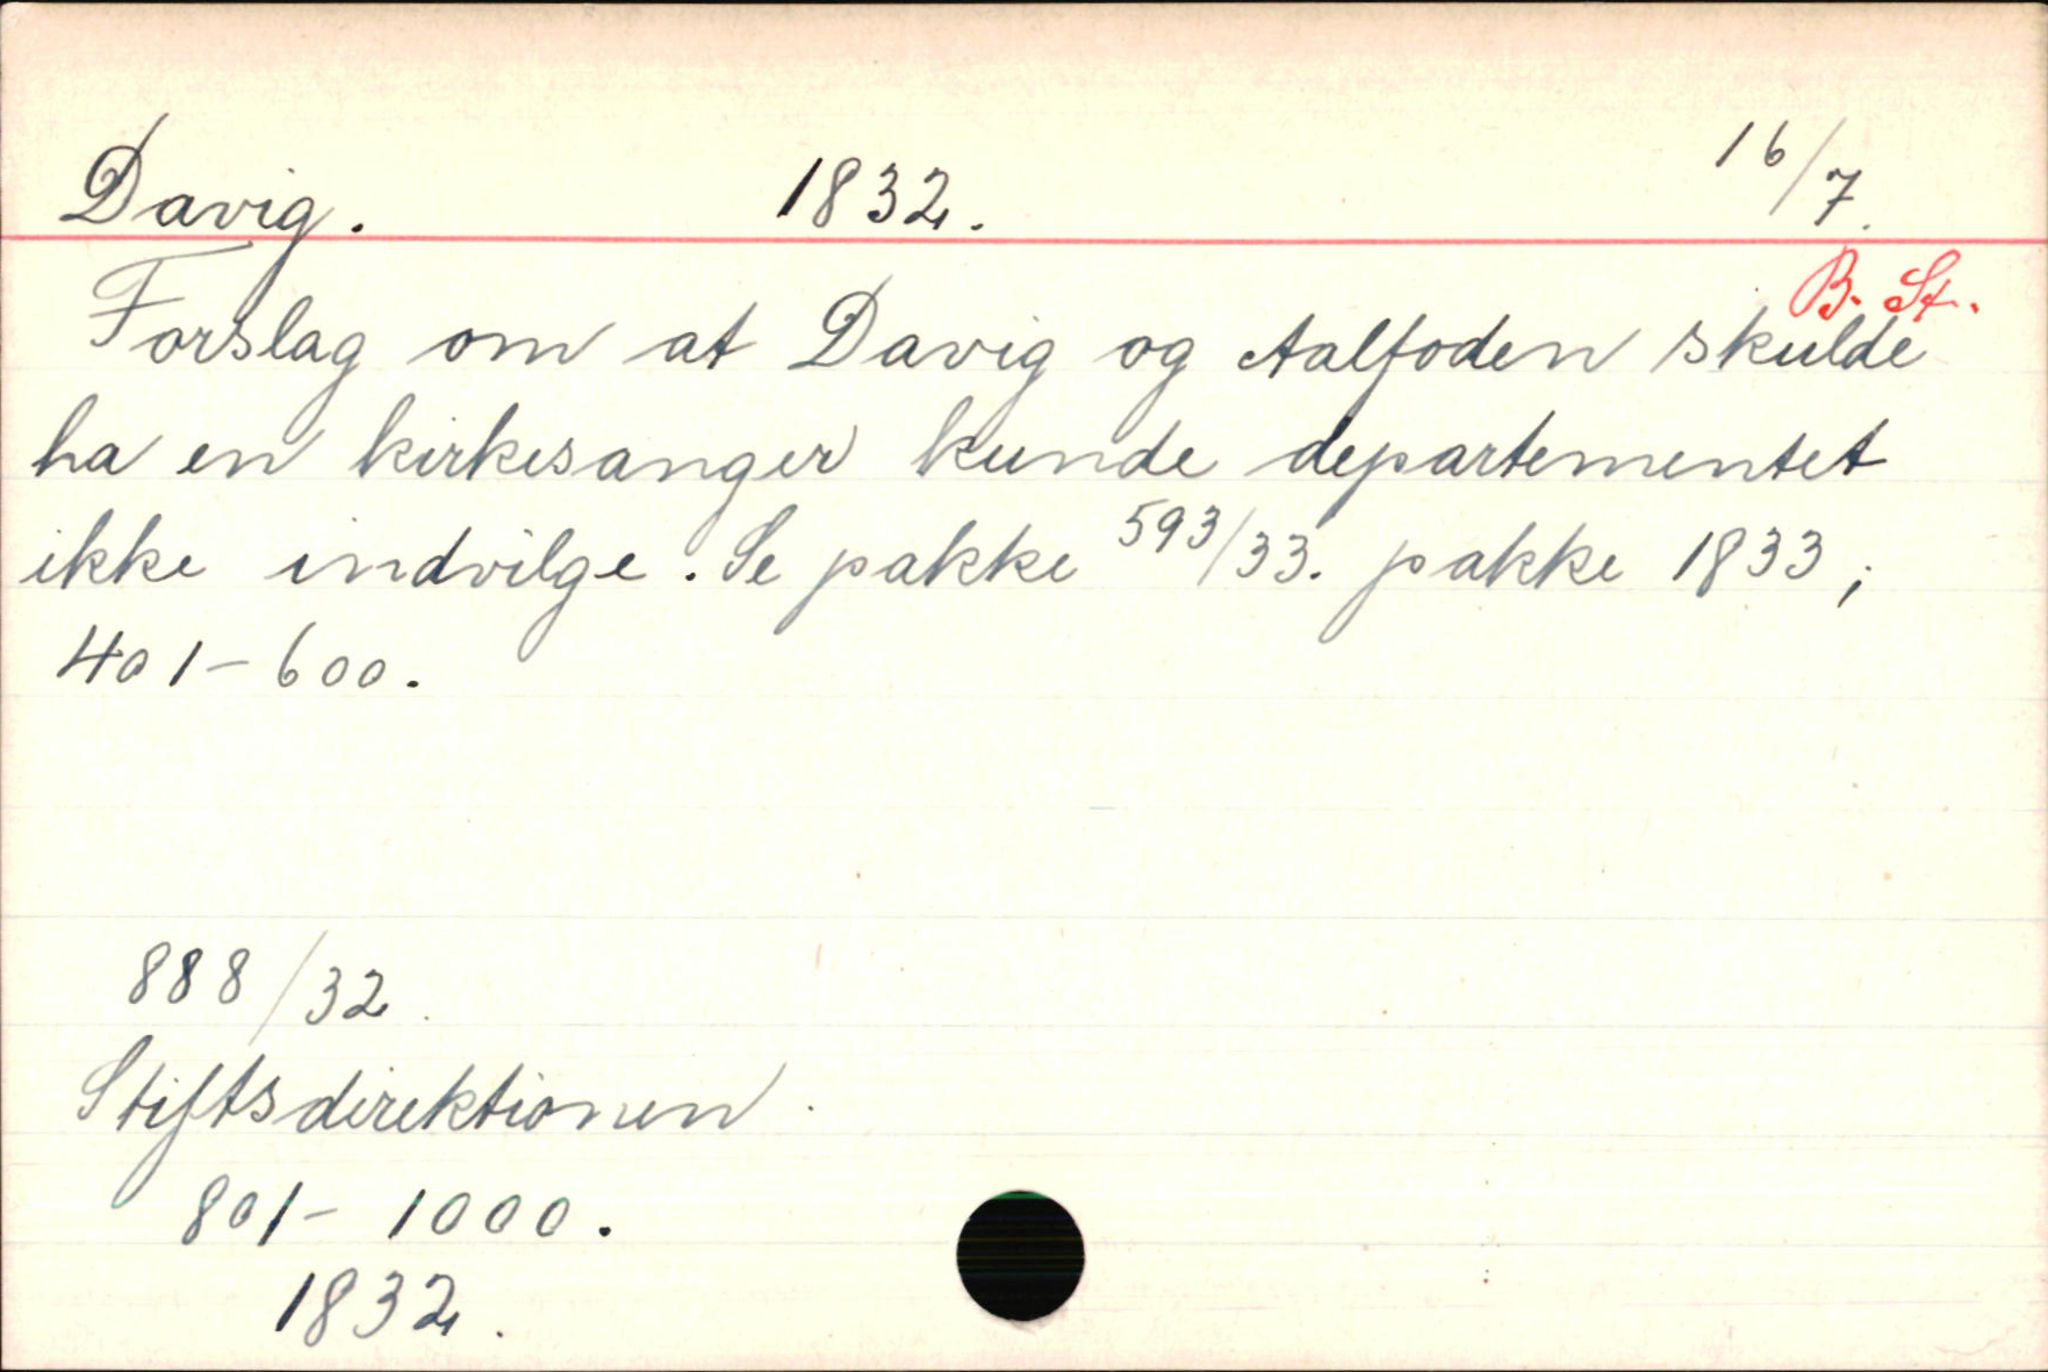 Davig. 1832. 16/7.
B. St.
Forslag om at Davig og Aalfoden skulde
ha en kirkesanger kunde departementet
ikke indvilge. Se pakke 593/33. pakke 1833;
401-600.
888/32.
Stiftsdirektionen.
801- 1000.
1832.